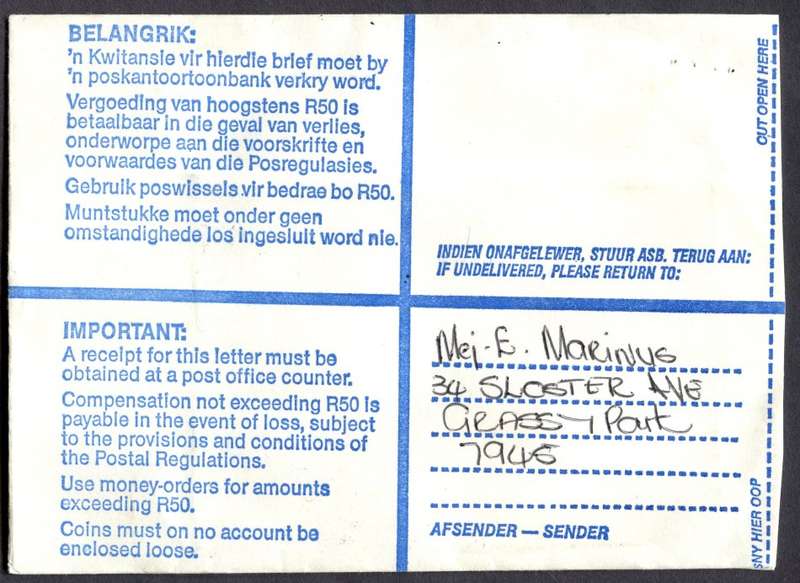 BELANGRIK:
'n Kwitansie vir hierdie brief moet by
'n poskantoortoonbank verkry word.
Vergoeding van hoogstens R50 is
betaalbaar in die geval van verlies,
onderworpe aan die voorskrifte en
voorwaardes van die Posregulasies.
Gebruik poswissels vir bedrae bo R50.
Muntstukke moet onder geen
omstandighede los ingesluit word nie.
INDIEN ONAFGELEWER, STUUR ASB. TERUG AAN:
IF UNDELIVERED, PLEASE RETURN TO:
CUT OPEN HERE
IMPORTANT:
A receipt for this letter must be
obtained at a post office counter.
Compensation not exceeding R50 is
payable in the event of loss, subject
to the provisions and conditions of
the Postal Regulations.
Use money-orders for amounts
exceeding R50.
Coins must on no account be
enclosed loose.
Mej. E. Marinus
34 SLOSTER AVE
GRASSY Park
7945
AFSENDER — SENDER
SNY HIER OOP